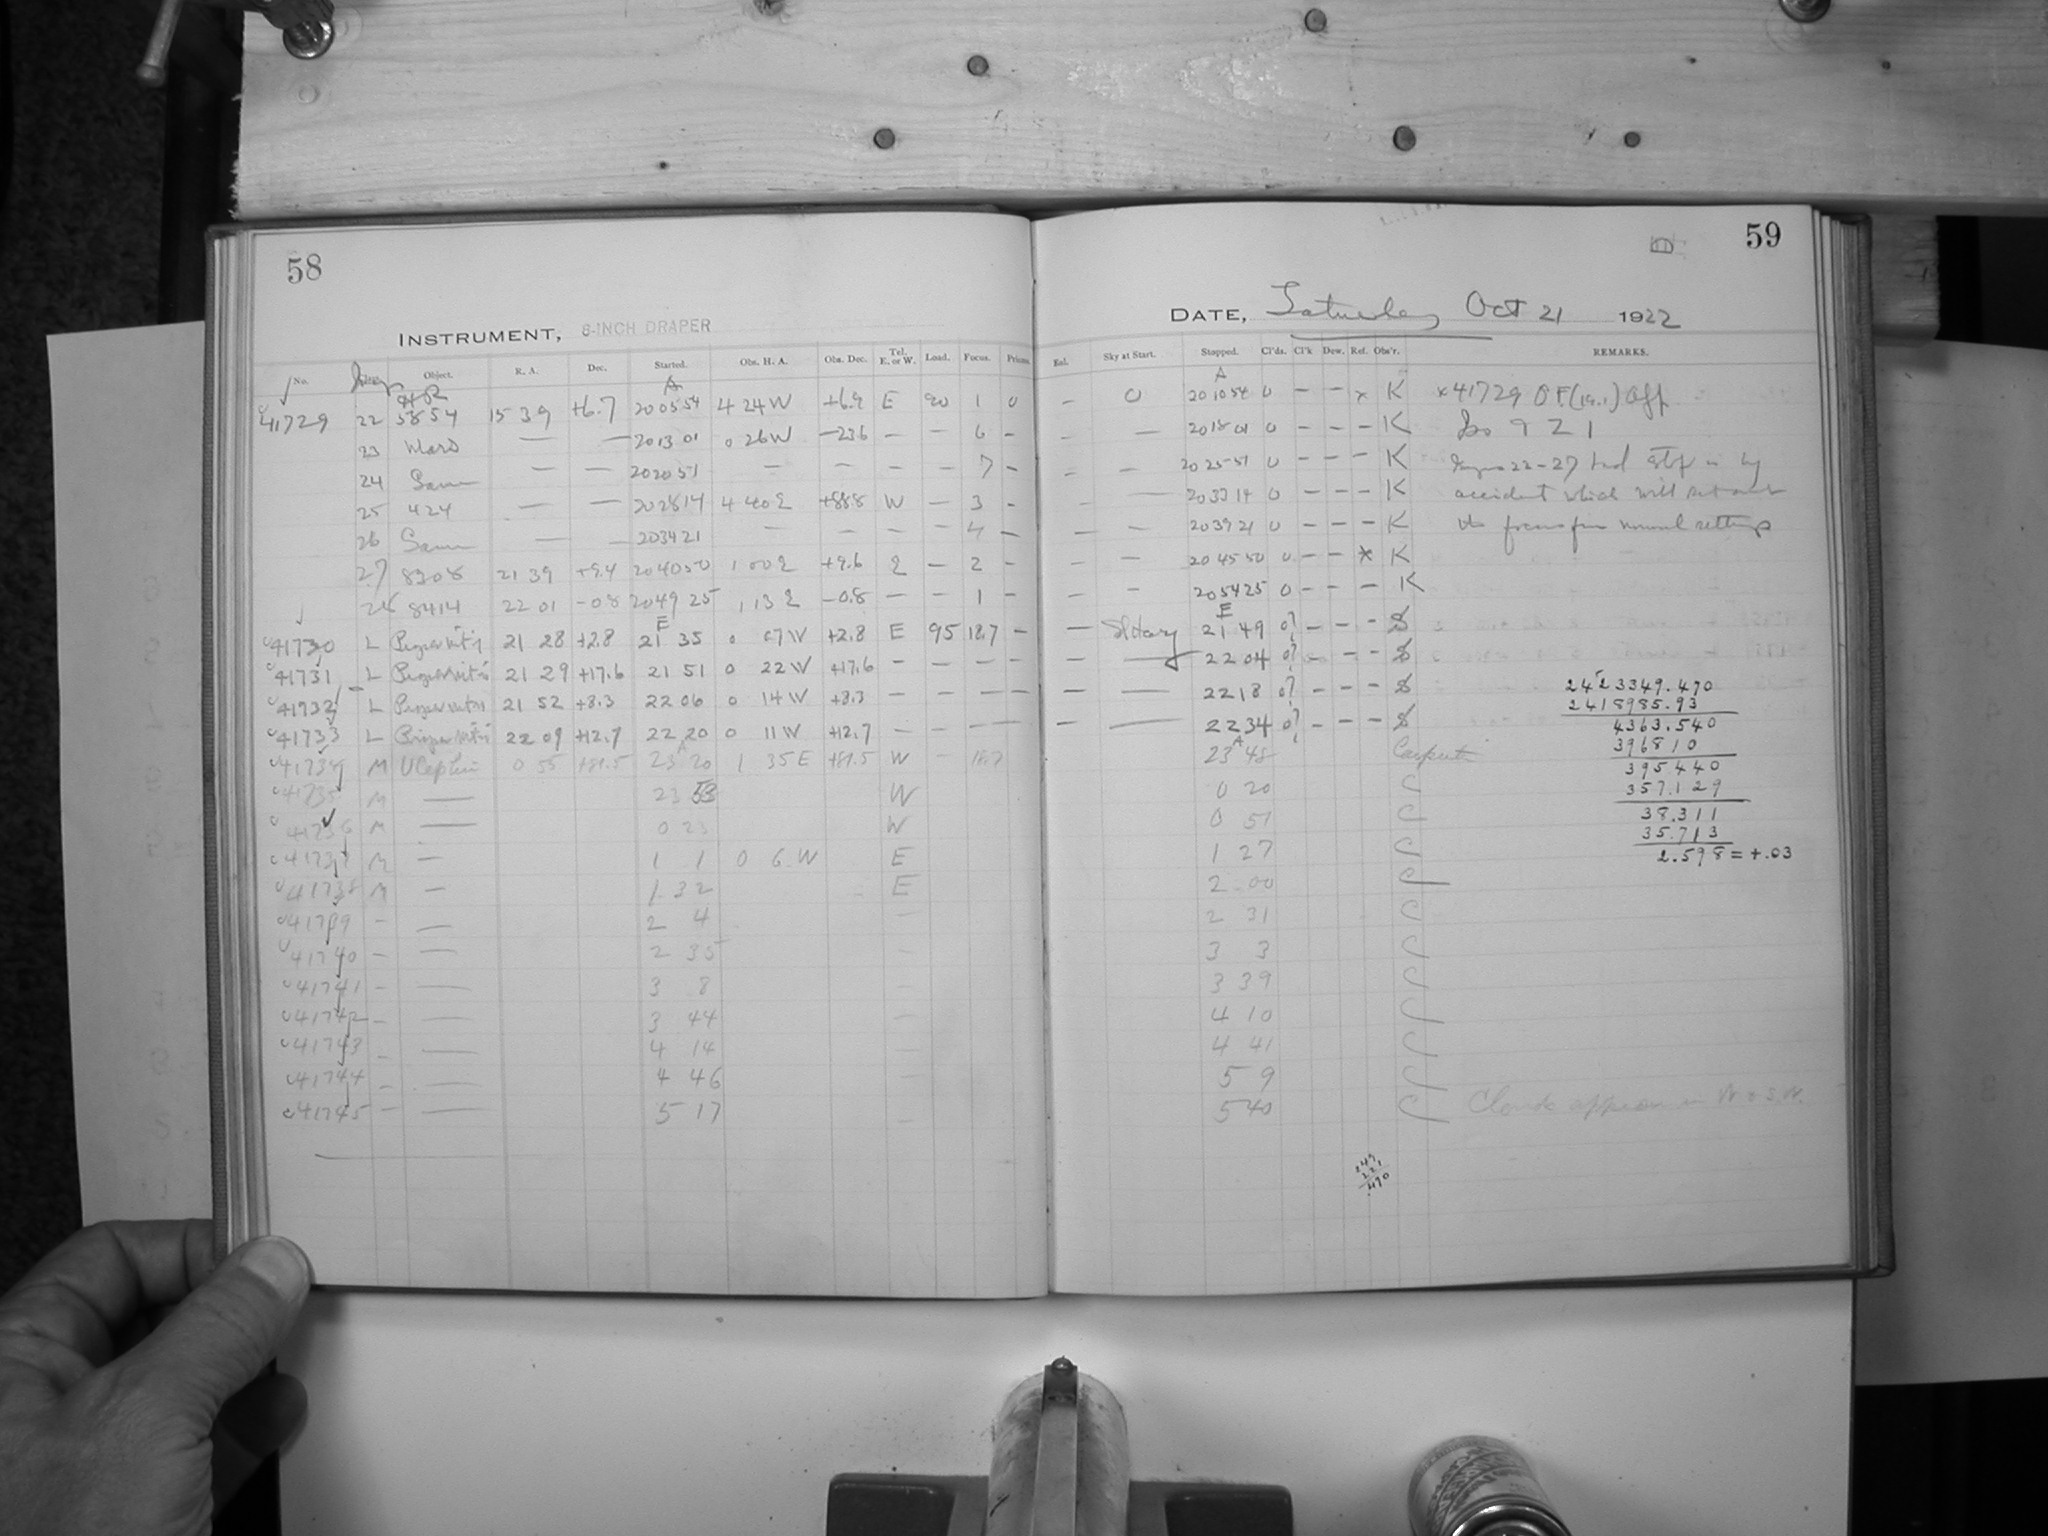 58
INSTRUMENT, 8-INCH DRAPER
No. Object. R. A. Dec. Started. Obs. H. A. Obs. Dec. Tel. E. or W. Load. Focus. Prism
A
41729 22 5854 15 39 +6.7 20 05 54 4 24 W +6.9 E 90 1 0
23 Mars — — 20 13 01 0 26 W −23.6 — — 6 –
24 Same — — 20 20 51 — — — — 7 –
25 424 — — 20 28 14 4 40 E +88.8 W — 3 –
26 Same — — 20 34 21 — — — — 4 —
27 8308 21 39 +9.4 20 40 50 1 00 E +9.6 E — 2 –
28 8414 22 01 −0.8 20 49 25 1 13 E −0.8 — — 1 –
E
41730 L 21 28 +2.8 21 35 0 07 W +2.8 E 95 18.7 —
41731 L 21 29 +17.6 21 51 0 22 W +17.6 — — — —
41732 L 21 52 +8.3 22 06 0 14 W +8.3 — — — —
41733 L 22 09 +12.7 22 20 0 11 W +12.7 — — —
A
41734 M U Cephei 0 55 +81.5 23 20 1 35 E +81.5 W — 18.7
41735 M — 23 53 W
41736 M — 0 23 W
41737 M — 1 1 0 6 W E
41738 M — 1 32 E
41739 – — 2 4 —
41740 – — 2 35 —
41741 – — 3 8 —
41742 – — 3 44 —
41743 – — 4 14 —
41744 – — 4 46 —
41745 – — 5 17 —
59
DATE, Saturday Oct 21 1922
Sky at Start. Stopped. Cl'ds. Cl'k Dew. Ref. Obs'r. REMARKS.
A
– 0 20 10 54 0 – – x K x 41729
— — 20 18 01 0 – – – K
– — 20 25 51 0 – – – K 22–27 had in by
— 20 33 14 0 – – – K accident which will
— — 20 39 21 0 – – – K focus from normal settings
– — 20 45 50 0 – – * K
– — 20 54 25 0 – – – K
E
— 21 49 0? – – – S
— — 22 04 0? – – – S
— — 22 18 0? – – – S
— — 22 34 0? – – – S
A
23 48 Carpenter
0 20 C
0 51 C
1 27 C
2 00 C
2 31 C
3 3 C
3 39 C
4 10 C
4 41 C
5 9 C
5 40 C Clouds appear in W & S.W.
2423349.470
2418985.93
4363.540
396810
395440
357.129
38.311
35.713
2.598 = +.03
249
221
.470